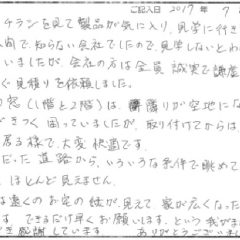 ご記入日 2017年 7
チラシを見て製品が気に入り、見学に行き
入間で、知らない会社でしたので、見学しないとわ
いましたが、会社の方は全員誠実で
ぐ見積りを依頼しました。
窓(1階と2階)は、 りが空地にな
きつく困っていましたが、取り付けてからは
居る様で、大変快適です。
だった道路から、いろいろな条件で眺めて
、ほとんど見えません。
は遠くのお宅の 見えて 家が広くなった
す できるだけ早くお願いします。という我がま
感謝しています。 ありがとうござい